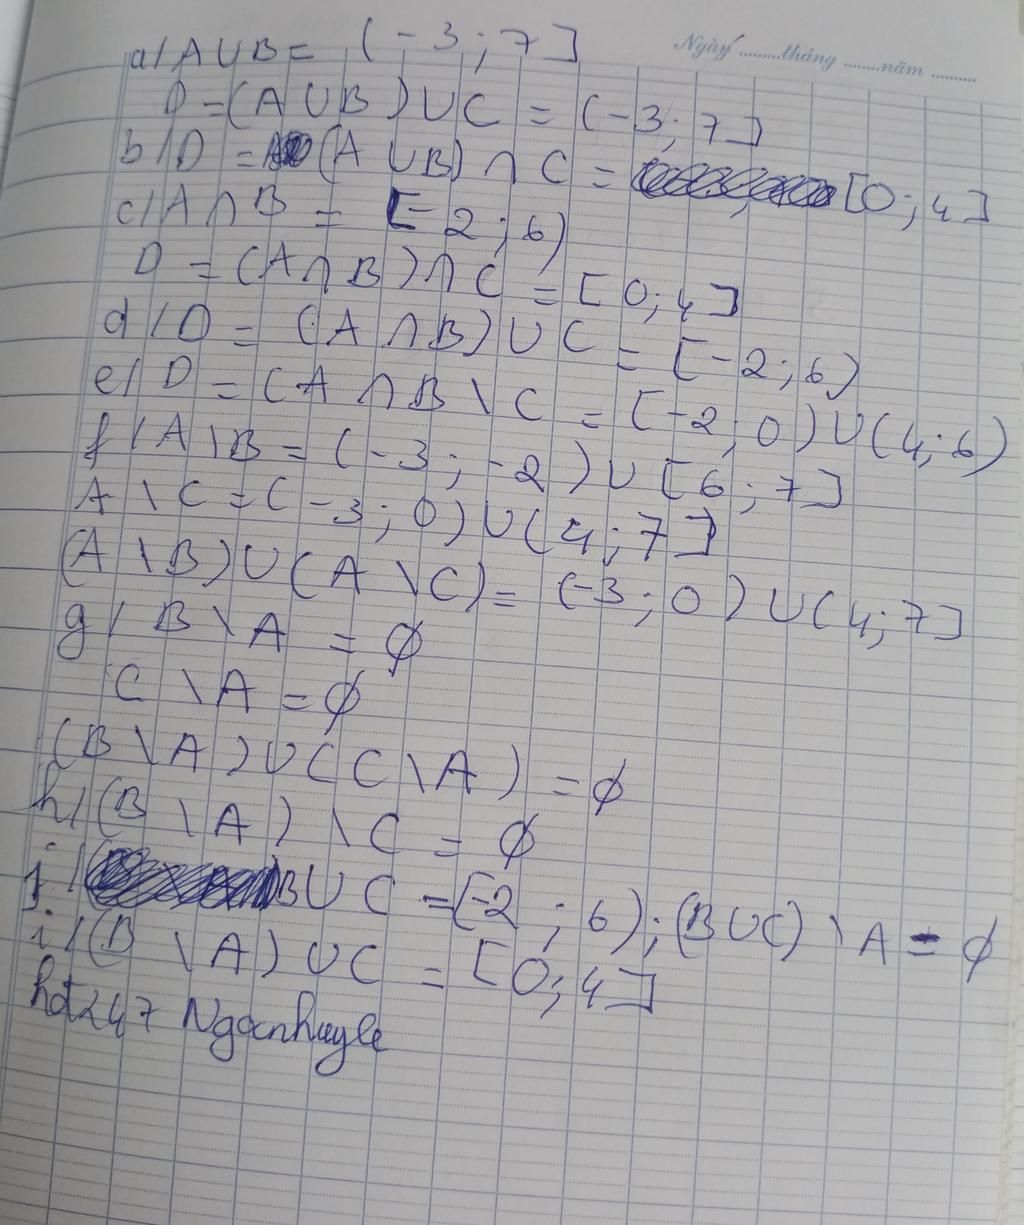 Ngày ........tháng ........năm ..........
a/ A∪B = (-3;7]
D = (A∪B)∪C = (-3;7]
b/ D = (A∪B)∩C = [0;4]
c/ A∩B = [-2;6)
D = (A∩B)∩C = [0;4]
d/ D = (A∩B)∪C = [-2;6)
e/ D = (A∩B\C = [-2;0)∪(4;6)
f/ A\B = (-3;-2)∪[6;7]
A\C = (-3;0)∪(4;7]
(A\B)∪(A\C) = (-3;0)∪(4;7]
g/ B\A = ∅
C\A = ∅
(B\A)∪(C\A) = ∅
h/ (B\A)\C = ∅
j/ B∪C = [-2;6); (B∪C)\A = ∅
i/ (B\A)∪C = [0;4]
hdt247 Nganhuyle